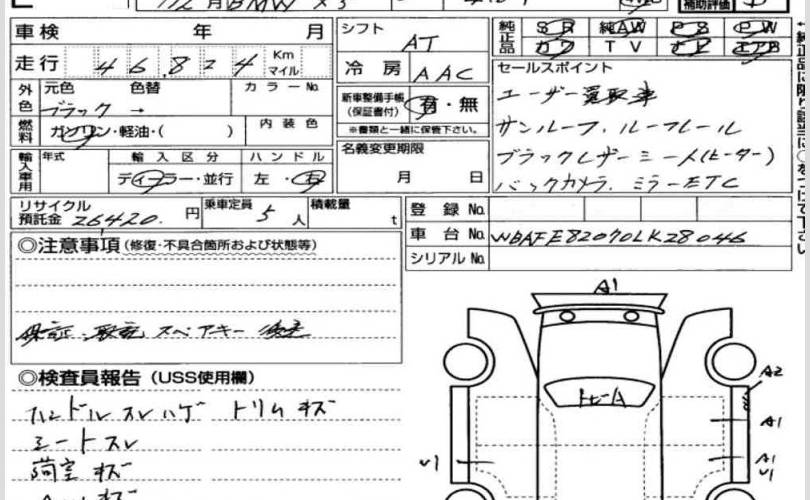 月BMW X3
補助評価
車検 年 月
シフト AT
純正品 SR 純AW PS PW
カワ TV ナビ エアB
走行 46,824 Km マイル
冷房 AAC
外色 元色 色替 カラーNo.
ブラック →
新車整備手帳(保証書付) 有・無
※書類と一緒に保管下さい。
燃料 ガソリン・軽油・( ) 内装色
輸入車用 年式 輸入区分 ハンドル
ディーラー・並行 左・右
名義変更期限
月 日
セールスポイント
ユーザー買取車
サンルーフ. ルーフレール
ブラックレザーシート(ヒーター)
バックカメラ. ミラーETC
リサイクル預託金 26420. 円 乗車定員 5人 積載量 t
登録No.
車台No. WBAFE82070LK28046
シリアルNo.
◎注意事項(修復・不具合箇所および状態等)
保証・取説 スペアキー 後送
◎検査員報告(USS使用欄)
ハンドル スレ ハゲ トリム キズ
シート スレ
荷室 キズ
キズ
A1
A2
A1
A1
U1
U1